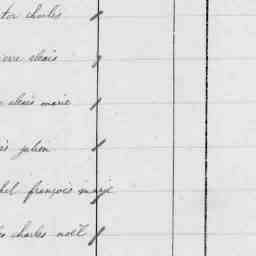 tor charles
erre alexis
alexis marie
is julien
hel françois marie
es charles noël